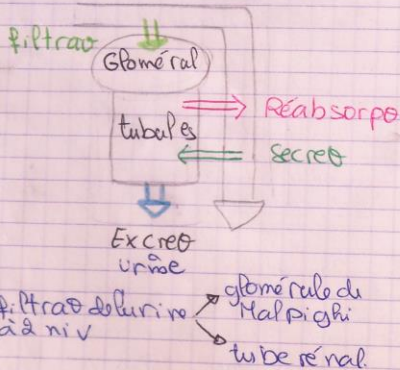 filtraθ
Gloméral
tubules
Réabsorpθ
Secreθ
Excreθ
urine
filtraθ de lurine
à 2 niv
glomérule de
Malpighi
tube rénal.